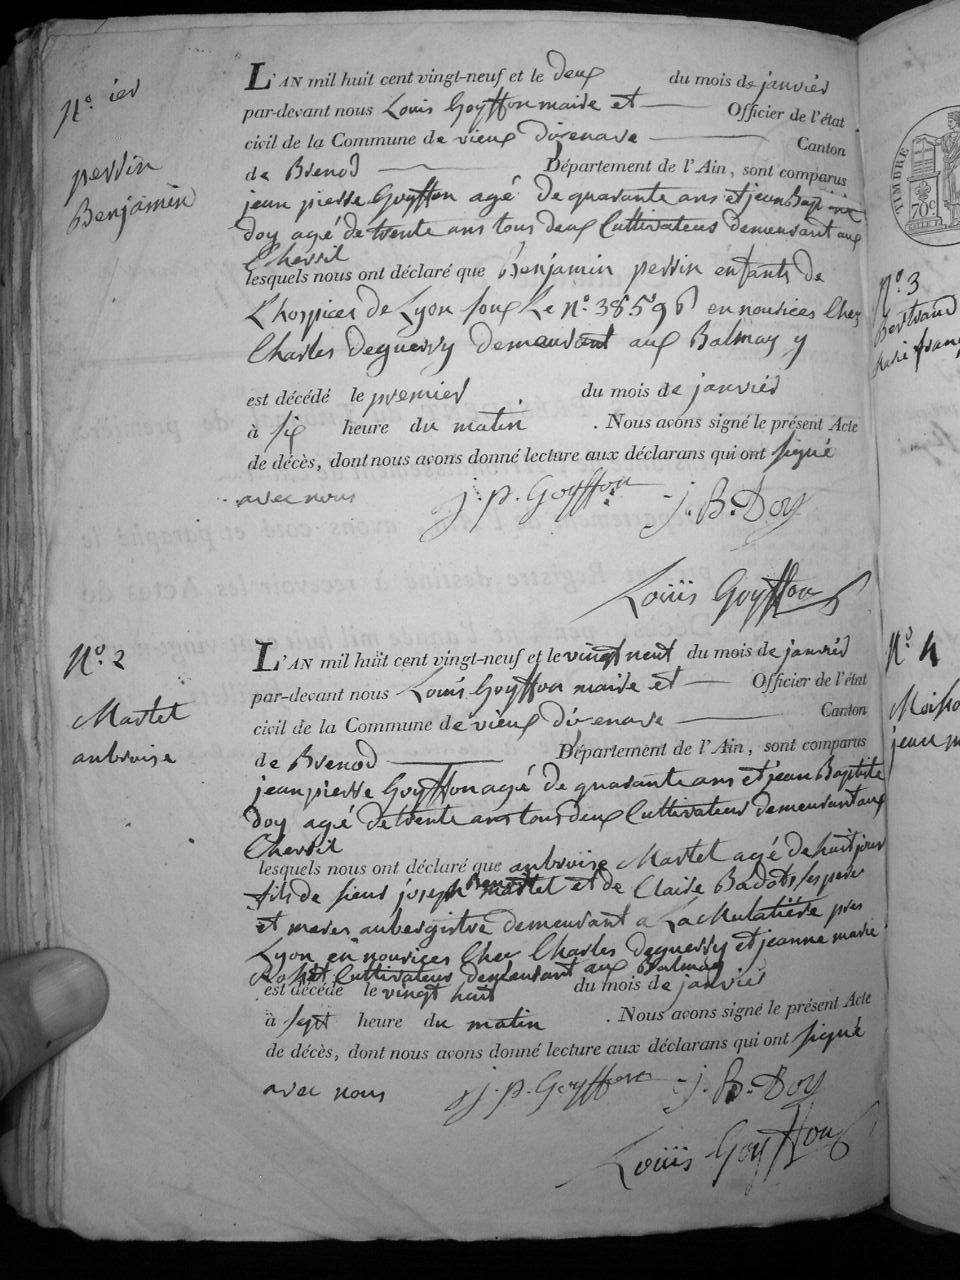 N.º ier
perrin
Benjamin
L'AN mil huit cent vingt-neuf et le deux du mois de janvier
par-devant nous Louis Goyffon maire et Officier de l'état
civil de la Commune de vieux d'izenave Canton
de Brenod Département de l'Ain, sont comparus
jean pierre Goyffon agé de quarante ans et jean Baptiste
doy agé de trente ans tous deux Cultivateurs demeurant aux
Chevril
lesquels nous ont déclaré que Benjamin perrin enfants de
L'hospices de Lyon sous Le n.º 38596 en nourices Chez
Charles deguerry demeurant aux Balmay
est décédé le premier du mois de janvier
à six heure du matin . Nous avons signé le présent Acte
de décès, dont nous avons donné lecture aux déclarans qui ont signé
avec nous j. p. Goyffon j. B. Doy
Louiis Goyffon
N.º 2
Martet
anbroise
L'AN mil huit cent vingt-neuf et le vingt neuf du mois de janvier
par-devant nous Louis Goyffon maire et Officier de l'état
civil de la Commune de vieux d'izenave Canton
de Brenod Département de l'Ain, sont comparus
jean pierre Goyffon agé de quarante ans et jean Baptiste
doy agé de trente ans tous deux Cultivateurs demeurant aux
Chevril
lesquels nous ont déclaré que anbroise Martet agé de huit jour
fils de sieur joseph martet et de Claire Badots ses pere
et meres aubergistre demeurant a La Mulatière pres
Lyon en nourices Chez Charles deguerry et jeanne marie
Cultivateurs demeurant aux Balmay
est décédé le vingt huit du mois de janvier
à sept heure du matin . Nous avons signé le présent Acte
de décès, dont nous avons donné lecture aux déclarans qui ont signé
avec nous j. p. Goyffon j. B. Doy
Louiis Goyffon
TIMBRE
70c.
N.º 3
Bertrand
N.º 4
jean